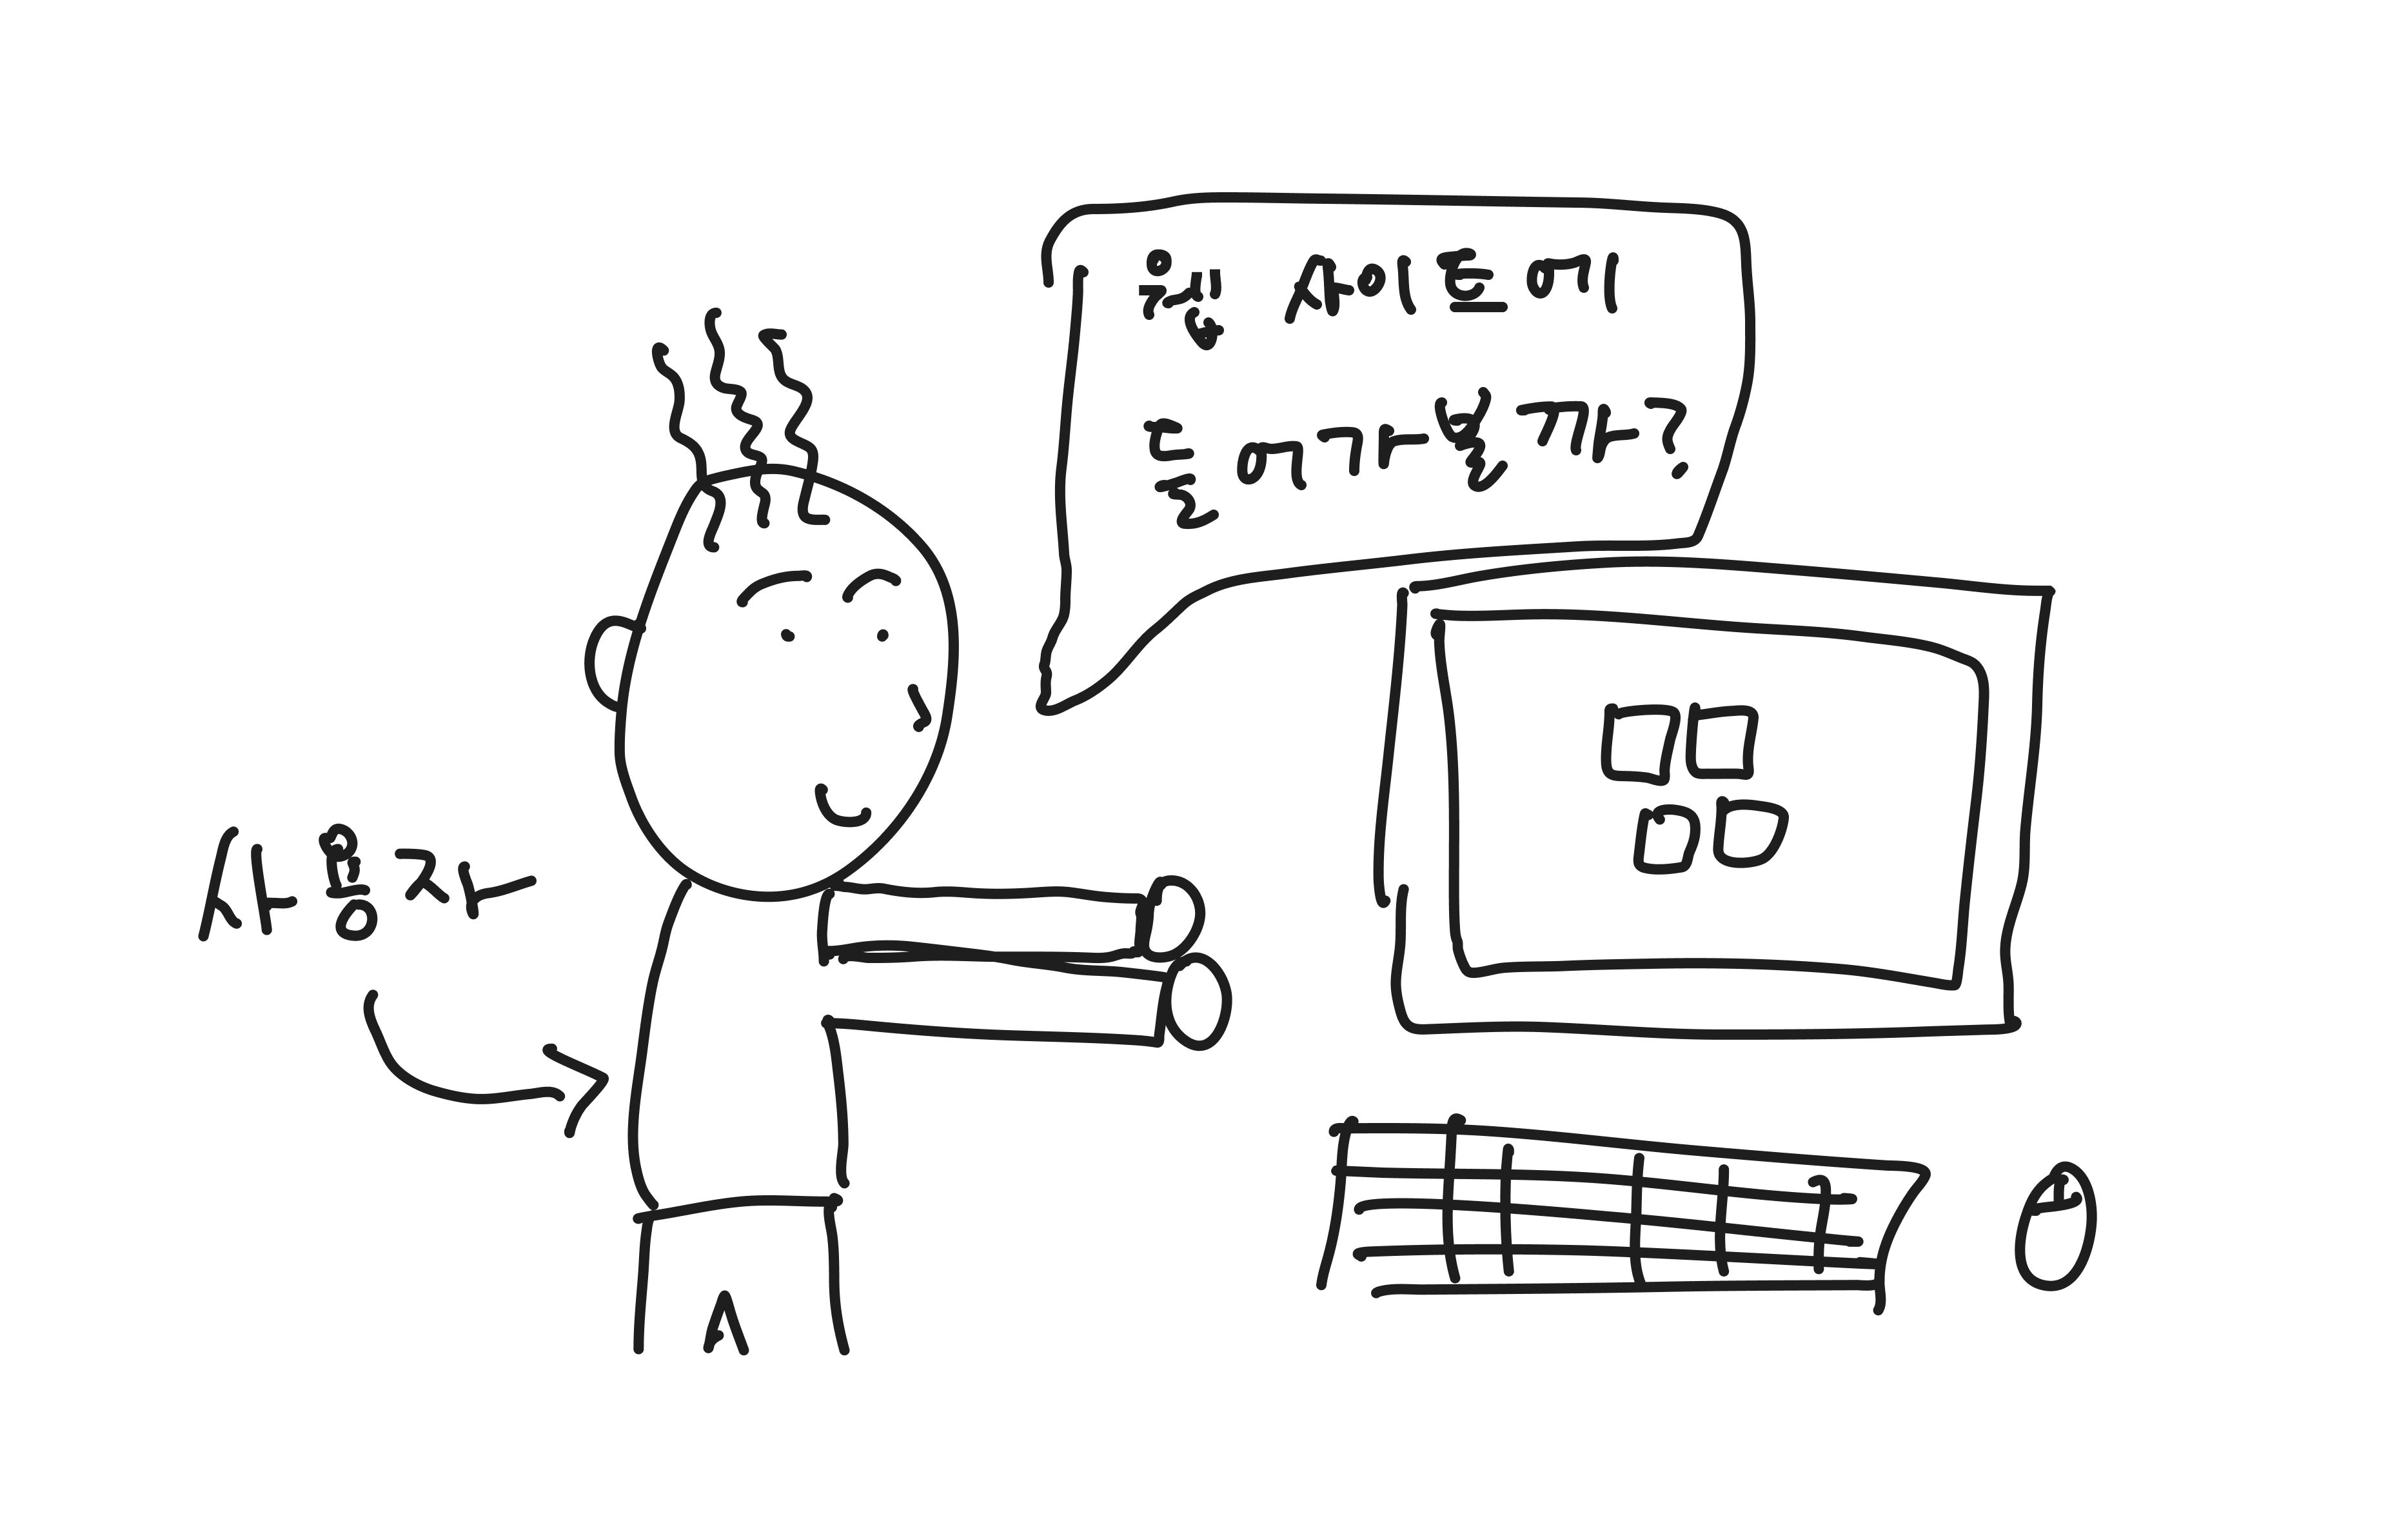 웹 사이트에
들어가볼까?
사용자